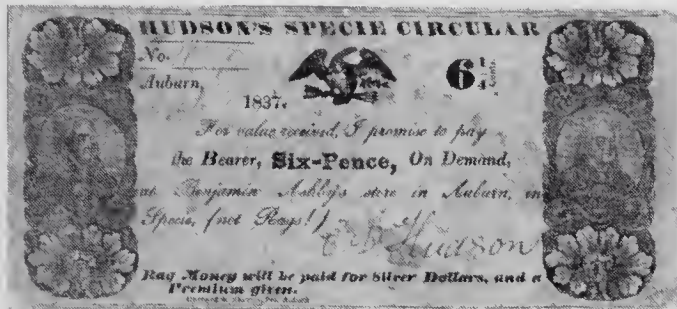 HUDSON'S SPECIE CIRCULAR
No.
6¼ Cents.
Auburn,
1837.
For value received, I promise to pay
the Bearer, Six-Pence, On Demand,
at Benjamin Ashby's store in Auburn, in
Specie, (not Rags!)
Hudson
Rag Money will be paid for Silver Dollars, and a
Premium given.